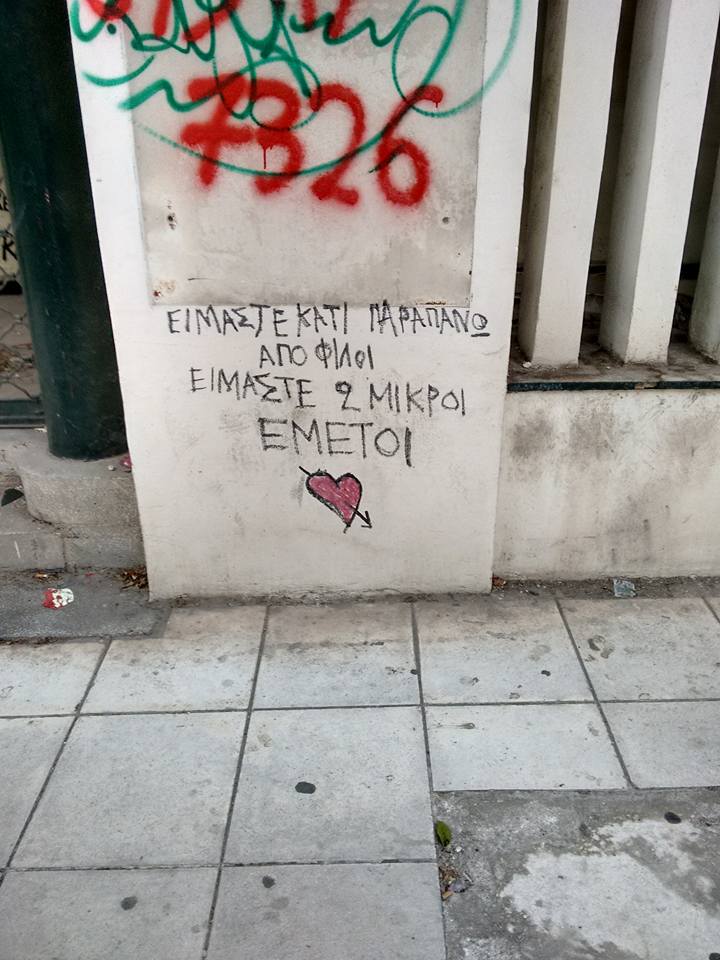 7326
ΕΙΜΑΣΤΕ ΚΑΤΙ ΠΑΡΑΠΑΝΩ
ΑΠΟ ΦΙΛΟΙ
ΕΙΜΑΣΤΕ 2 ΜΙΚΡΟΙ
ΕΜΕΤΟΙ